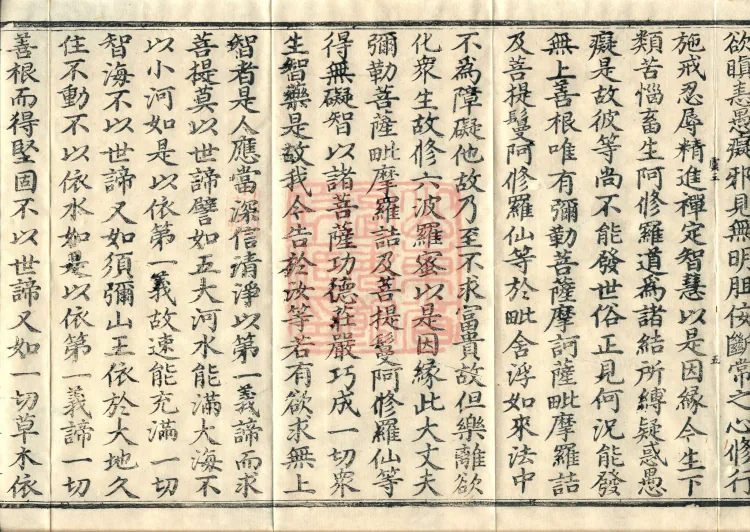 欲瞋恚愚癡邪見無明胆佞斷常之心修行
施戒忍辱精進禪定智慧以是因緣今生下
類苦惱畜生阿修羅道為諸結所縛疑惑愚
癡是故彼等尚不能發世俗正見何況能發
無上善根唯有彌勒菩薩摩訶薩毗摩羅詰
及菩提鬘阿修羅仙等於毗舍浮如來法中
不為障礙他故乃至不求富貴故但樂離欲
化衆生故修六波羅蜜以是因緣此大丈夫
彌勒菩薩毗摩羅詰及菩提鬘阿修羅仙等
得無礙智以諸菩薩功德莊嚴巧成一切衆
生智藥是故我今告於汝等若有欲求無上
智者是人應當深信清淨以第一義諦而求
菩提莫以世諦譬如五大河水能滿大海不
以小河如是以依第一義故速能充滿一切
智海不以世諦又如須彌山王依於大地久
住不動不以依水如是以依第一義諦一切
善根而得堅固不以世諦又如一切草木依
五